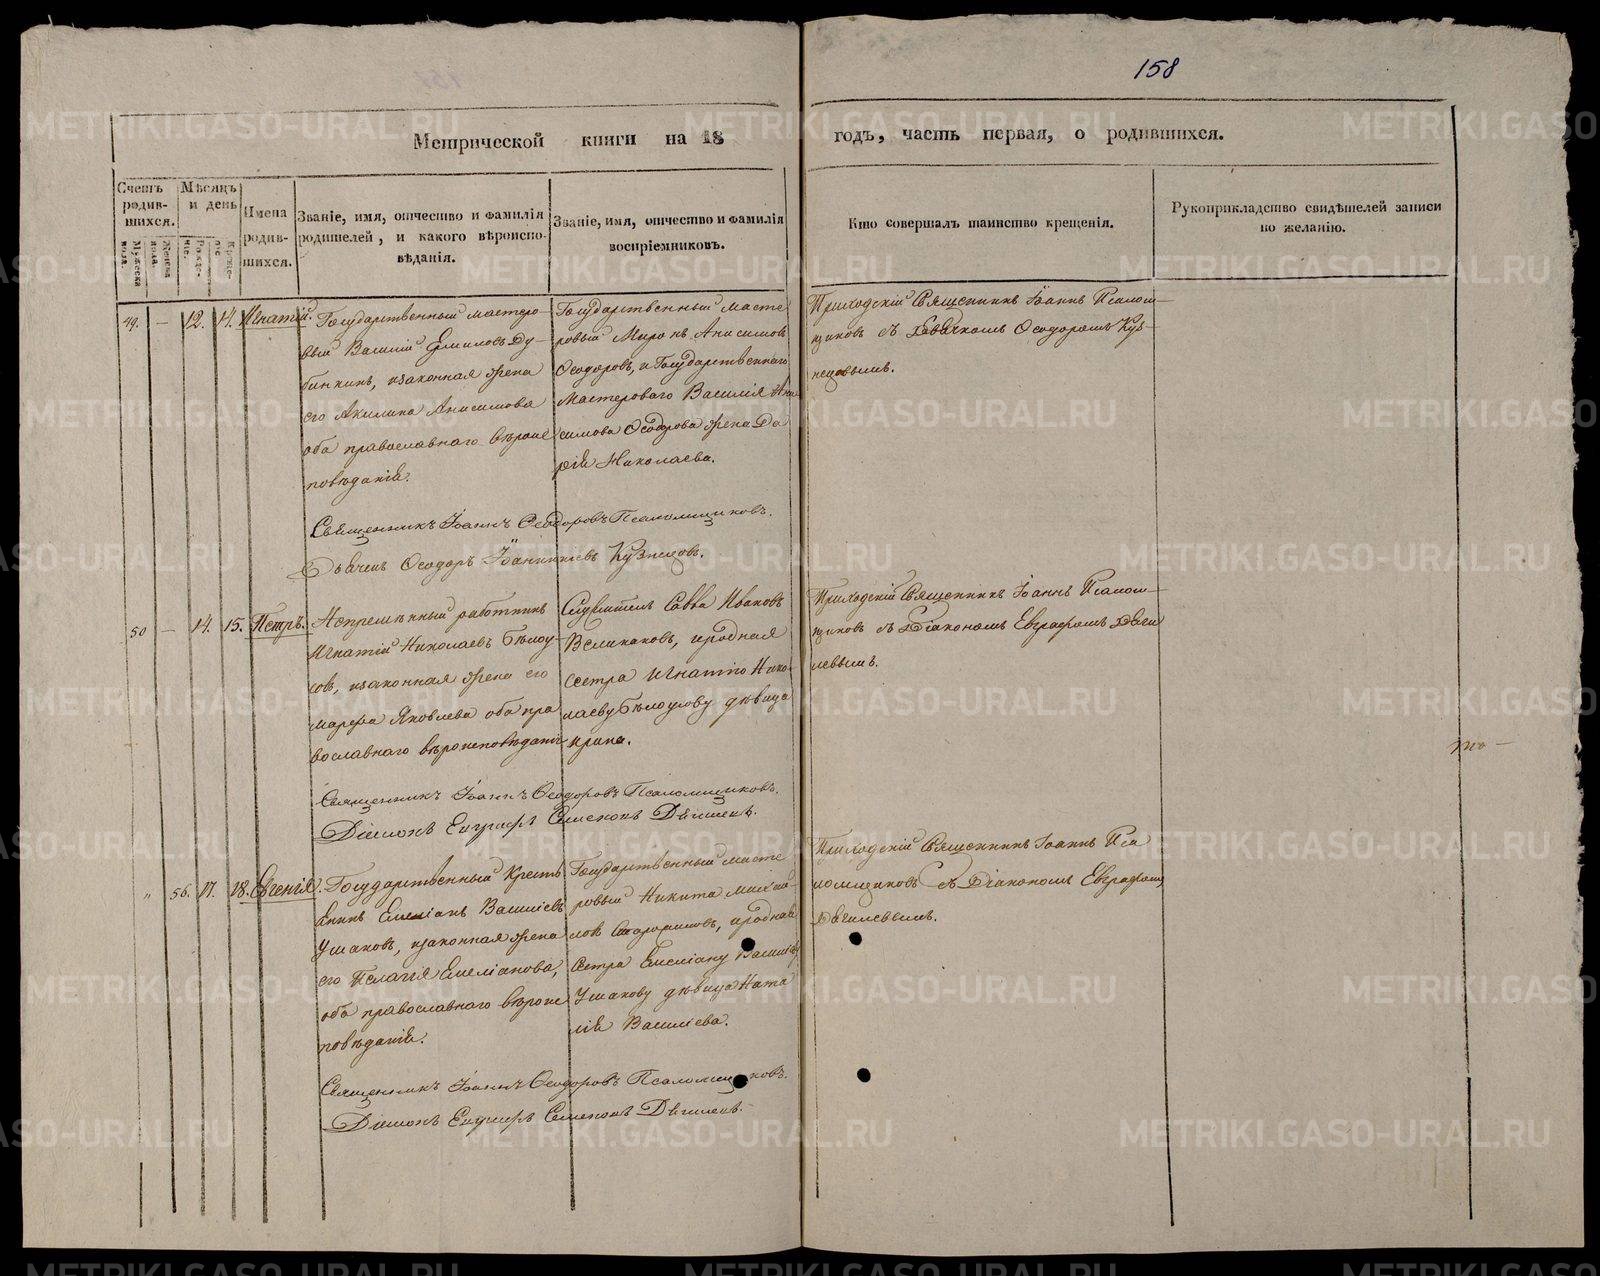 158
Метрической книги на 18 годъ, часть первая, о родившихся.
Счетъ родив-шихся.
Мужеска пола.
Женска пола.
Мѣсяцъ и день
Рожде-нія.
Креще-нія.
Имена родив-шихся.
Званіе, имя, отчество и фамилія родителей, и какого вѣроиспо-вѣданія.
Званіе, имя, отчество и фамилія воспріемниковъ.
Кто совершалъ таинство крещенія.
Рукоприкладство свидѣтелей записи по желанію.
49. — 12. 14. Игнатій.
Государственный мастеро-
вый Василій Ѳедор
бинкинъ, и законная жена
его Акилина Анисимова
оба православнаго вѣроис
повѣданія.
Государственный масте
ровый Миронъ Анисимовъ
Ѳеодоровъ, и Государственнаго
Мастероваго Василія Ани
симова Ѳеодорова жена Да
рія Николаева.
Приходскій Священникъ Іоаннъ Псалом—
щиковъ съ Дьячкомъ Ѳеодоромъ Куз—
нецовымъ.
Священникъ Іоаннъ Ѳеодоровъ Псаломщиковъ.
Дьячекъ Ѳеодоръ Іоанникіевъ Кузнецовъ.
50 — 14. 15. Петръ.
Непремѣнный работникъ
Игнатій Николаевъ Бѣлоу-
совъ, и законная жена его
Марѳа Яковлева оба пра
вославнаго вѣроисповѣданія
Служитель Савва Ивановъ
Великановъ, и родная
сестра Игнатію Нико-
лаеву Бѣлоусову дѣвица
Ирина.
Приходскій Священникъ Іоаннъ Псалом—
щиковъ съ Діакономъ Евграфомъ Дяги
левымъ.
Священникъ Іоаннъ Ѳеодоровъ Псаломщиковъ.
Діаконъ Евграфъ Семеновъ Дягилевъ.
„ 56. 17. 18. Евгенія.
Государственный Кресть
янинъ Емеліанъ Василіевъ
Ушаковъ, и законная жена
его Пелагія Емеліанова,
оба православнаго вѣроис
повѣданія.
Государственный масте
ровый Никита Михай-
ловъ и родная
сестра Емеліану Василіеву
Ушакову дѣвица Ната
лія Василіева.
Приходскій Священникъ Іоаннъ Пса
ломщиковъ съ Діакономъ Евграфомъ
Дягилевымъ.
Священникъ Іоаннъ Ѳеодоровъ Псаломщиковъ.
Діаконъ Евграфъ Семеновъ Дягилевъ.
METRIKI.GASO-URAL.RU